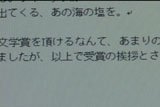 出てくる、あの海の塩を。
文学賞を頂けるなんて、あまりの
ましたが、以上で受賞の挨拶とさ